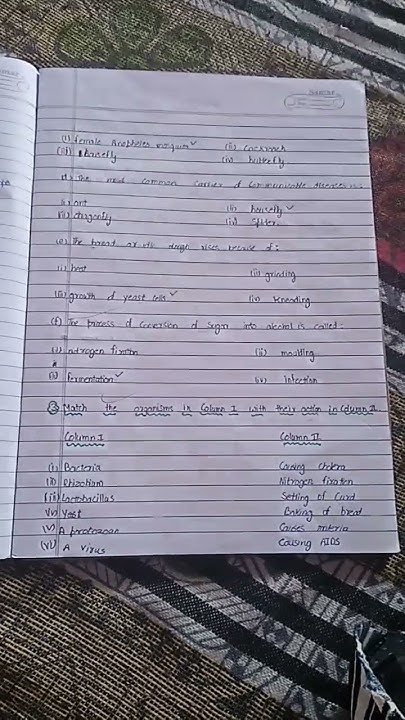 (i) female Anopheles mosquito ✓ (ii) cockroach
(iii) housefly (iv) butterfly
d) The most common carrier of communicable diseases is:
(i) ant (ii) housefly ✓
(iii) dragonfly (iv) spider
(e) The bread or idli dough rises because of:
(i) heat (ii) grinding
(iii) growth of yeast cells ✓ (iv) kneading
(f) The process of conversion of sugar into alcohol is called:
(i) nitrogen fixation (ii) moulding
(iii) fermentation ✓ (iv) infection
Match the organisms in Column I with their action in Column II.
Column I Column II
(i) Bacteria Causing cholera
(ii) Rhizobium Nitrogen fixation
(iii) Lactobacillus Setting of Curd
(iv) Yeast Baking of bread
(v) A protozoan Causes malaria
(vi) A virus Causing AIDS